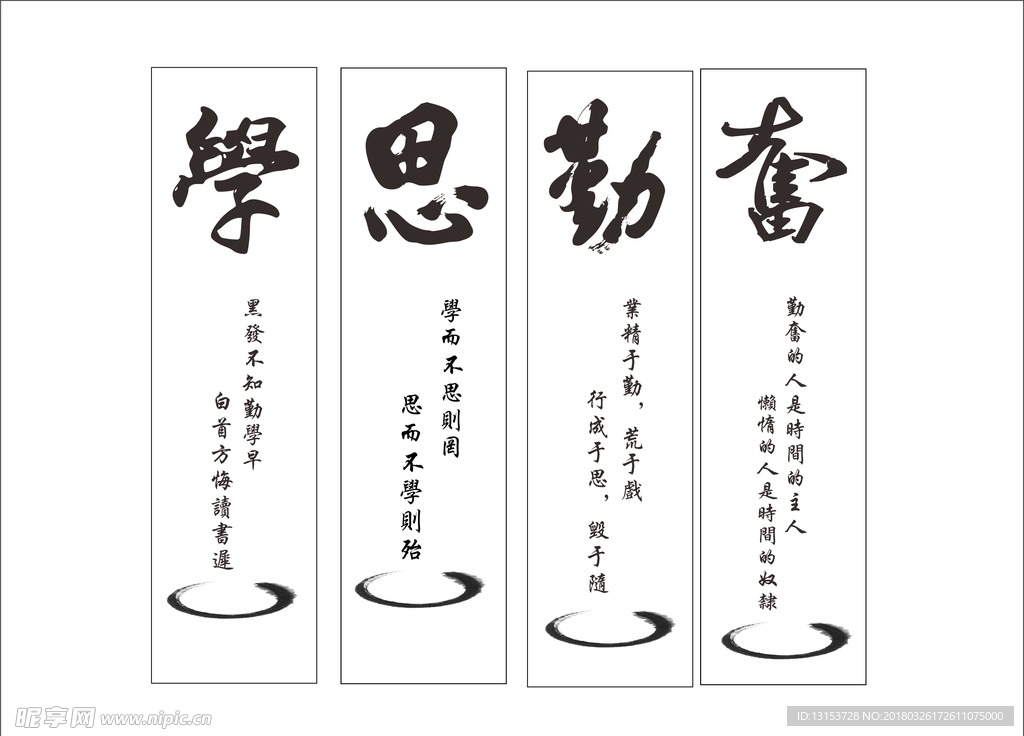 學
黑發不知勤學早
白首方悔讀書遲
思
學而不思則罔
思而不學則殆
勤
業精于勤，荒于戲
行成于思，毀于隨
奮
勤奮的人是時間的主人
懶惰的人是時間的奴隸
昵享网 www.nipic.cn
ID:13153728 NO:20180326172611075000